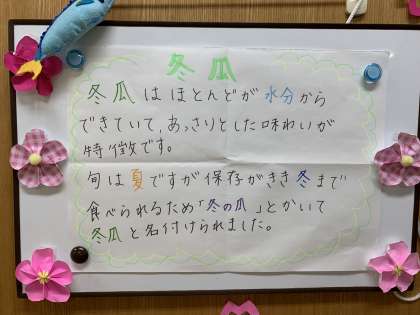 冬瓜
冬瓜はほとんどが水分から
できていて、あっさりとした味わいが
特徴です。
旬は夏ですが保存がきき冬まで
食べられるため「冬の瓜」とかいて
冬瓜と名付けられました。